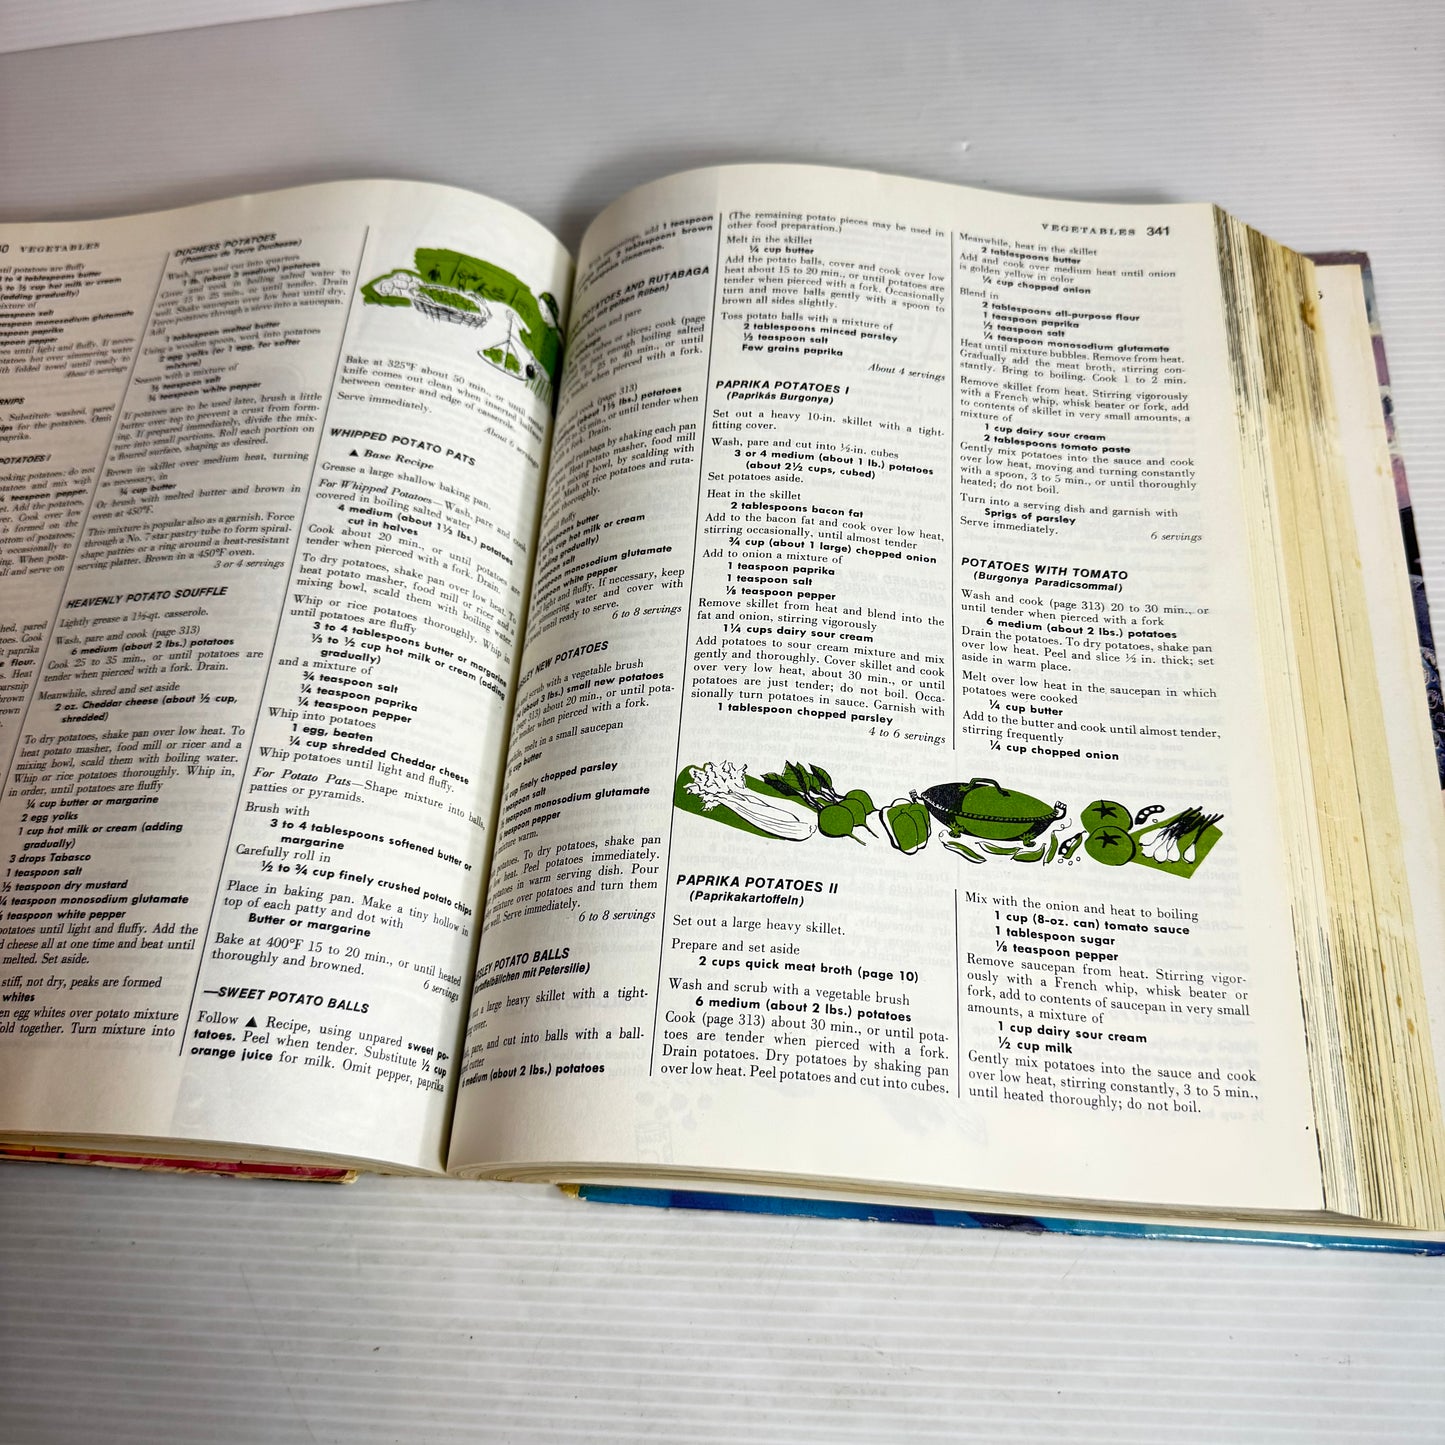 VEGETABLES
until potatoes are fluffy
to 4 tablespoons butter
to ½ cup hot milk or cream
(adding gradually)
mixture of
teaspoon salt
teaspoon monosodium glutamate
teaspoon paprika
potatoes until light and fluffy. If neces-
potatoes hot over simmering water
with folded towel until ready
About 6 servings
Substitute washed, pared
for the potatoes. Omit
paprika.
POTATOES I
cooking potatoes; do not
potatoes and mix with
¼ teaspoon pepper.
Add the potatoes.
over. Cook over low
is formed on the
bottom of potatoes,
occasionally to
ing. When pota-
and serve on
DUCHESS POTATOES
(Pommes de Terre Duchesse)
Wash, pare and cut into quarters
1 lb. (about 3 medium) potatoes
Cover and cook in boiling salted water to
cover 15 to 25 min., or until tender. Drain
well. Shake over low heat until dry.
Force potatoes through a sieve into a saucepan.
Add
1 tablespoon melted butter
Using a wooden spoon, work into potatoes
2 egg yolks (or 1 egg, for softer
mixture)
Season with a mixture of
½ teaspoon salt
¼ teaspoon white pepper
If potatoes are to be used later, brush a little
butter over top to prevent a crust from form-
ing. If prepared immediately, divide the mix-
ture into small portions. Roll each portion on
a floured surface, shaping as desired.
Brown in skillet over medium heat, turning
as necessary, in
¼ cup butter
Or brush with melted butter and brown in
oven at 450°F.
This mixture is popular also as a garnish. Force
through a No. 7 star pastry tube to form spiral-
shape patties or a ring around a heat-resistant
serving platter. Brown in a 450°F oven.
3 or 4 servings
HEAVENLY POTATO SOUFFLE
Lightly grease a 1½-qt. casserole.
Wash, pare and cook (page 313)
6 medium (about 2 lbs.) potatoes
Cook 25 to 35 min., or until potatoes are
tender when pierced with a fork. Drain.
Meanwhile, shred and set aside
2 oz. Cheddar cheese (about ½ cup,
shredded)
To dry potatoes, shake pan over low heat. To
heat potato masher, food mill or ricer and a
mixing bowl, scald them with boiling water.
Whip or rice potatoes thoroughly. Whip in,
in order, until potatoes are fluffy
¼ cup butter or margarine
2 egg yolks
1 cup hot milk or cream (adding
gradually)
3 drops Tabasco
1 teaspoon salt
½ teaspoon dry mustard
¼ teaspoon monosodium glutamate
teaspoon white pepper
potatoes until light and fluffy. Add the
cheese all at one time and beat until
melted. Set aside.
stiff, not dry, peaks are formed
whites
egg whites over potato mixture
fold together. Turn mixture into
Bake at 325°F about 50 min., or until a metal
knife comes out clean when inserted halfway
between center and edge of casserole.
Serve immediately.
About 6 servings
WHIPPED POTATO PATS
▲ Base Recipe
Grease a large shallow baking pan.
For Whipped Potatoes—Wash, pare and cook
covered in boiling salted water
4 medium (about 1⅓ lbs.) potatoes
cut in halves
Cook about 20 min., or until potatoes are
tender when pierced with a fork. Drain.
To dry potatoes, shake pan over low heat. To
heat potato masher, food mill or ricer and a
mixing bowl, scald them with boiling water.
Whip or rice potatoes thoroughly. Whip in
until potatoes are fluffy
3 to 4 tablespoons butter or margarine
⅓ to ½ cup hot milk or cream (adding
gradually)
and a mixture of
¾ teaspoon salt
¼ teaspoon paprika
¼ teaspoon pepper
Whip into potatoes
1 egg, beaten
¼ cup shredded Cheddar cheese
Whip potatoes until light and fluffy.
For Potato Pats—Shape mixture into balls,
patties or pyramids.
Brush with
3 to 4 tablespoons softened butter or
margarine
Carefully roll in
½ to ¾ cup finely crushed potato chips
Place in baking pan. Make a tiny hollow in
top of each patty and dot with
Butter or margarine
Bake at 400°F 15 to 20 min., or until heated
thoroughly and browned.
6 servings
—SWEET POTATO BALLS
Follow ▲ Recipe, using unpared sweet po-
tatoes. Peel when tender. Substitute ½ cup
orange juice for milk. Omit pepper, paprika
VEGETABLES 341
seasonings, add 1 teaspoon
2 tablespoons brown
teaspoon cinnamon.
POTATOES AND RUTABAGA
mit gelben Rüben)
halves and pare
slices; cook (page
just enough boiling salted
for 25 to 40 min., or until
tender when pierced with a fork.
(page 313)
(about 1½ lbs.) potatoes
min., or until tender when
fork. Drain.
rutabaga by shaking each pan
Heat potato masher, food mill
mixing bowl, by scalding with
Mash or rice potatoes and ruta-
thoroughly.
until fluffy
tablespoons butter
cup hot milk or cream
(adding gradually)
teaspoon salt
monosodium glutamate
teaspoon white pepper
until light and fluffy. If necessary, keep
simmering water and cover with
towel until ready to serve.
6 to 8 servings
PARSLEY NEW POTATOES
and scrub with a vegetable brush
(about 3 lbs.) small new potatoes
(page 313) about 20 min., or until pota-
tender when pierced with a fork.
Meanwhile, melt in a small saucepan
cup butter
cup finely chopped parsley
teaspoon salt
teaspoon monosodium glutamate
teaspoon pepper
mixture warm.
potatoes. To dry potatoes, shake pan
low heat. Peel potatoes immediately.
potatoes in warm serving dish. Pour
mixture over potatoes and turn them
well. Serve immediately.
6 to 8 servings
PARSLEY POTATO BALLS
(Kartoffelbällchen mit Petersilie)
out a large heavy skillet with a tight-
fitting cover.
pare, and cut into balls with a ball-
cutter
6 medium (about 2 lbs.) potatoes
(The remaining potato pieces may be used in
other food preparation.)
Melt in the skillet
¼ cup butter
Add the potato balls, cover and cook over low
heat about 15 to 20 min., or until potatoes are
tender when pierced with a fork. Occasionally
turn and move balls gently with a spoon to
brown all sides slightly.
Toss potato balls with a mixture of
2 tablespoons minced parsley
½ teaspoon salt
Few grains paprika
About 4 servings
PAPRIKA POTATOES I
(Paprikás Burgonya)
Set out a heavy 10-in. skillet with a tight-
fitting cover.
Wash, pare and cut into ½-in. cubes
3 or 4 medium (about 1 lb.) potatoes
(about 2½ cups, cubed)
Set potatoes aside.
Heat in the skillet
2 tablespoons bacon fat
Add to the bacon fat and cook over low heat,
stirring occasionally, until almost tender
¾ cup (about 1 large) chopped onion
Add to onion a mixture of
1 teaspoon paprika
1 teaspoon salt
⅛ teaspoon pepper
Remove skillet from heat and blend into the
fat and onion, stirring vigorously
1¼ cups dairy sour cream
Add potatoes to sour cream mixture and mix
gently and thoroughly. Cover skillet and cook
over very low heat, about 30 min., or until
potatoes are just tender; do not boil. Occa-
sionally turn potatoes in sauce. Garnish with
1 tablespoon chopped parsley
4 to 6 servings
Meanwhile, heat in the skillet
2 tablespoons butter
Add and cook over medium heat until onion
is golden yellow in color
¼ cup chopped onion
Blend in
2 tablespoons all-purpose flour
1 teaspoon paprika
½ teaspoon salt
¼ teaspoon monosodium glutamate
Heat until mixture bubbles. Remove from heat.
Gradually add the meat broth, stirring con-
stantly. Bring to boiling. Cook 1 to 2 min.
Remove skillet from heat. Stirring vigorously
with a French whip, whisk beater or fork, add
to contents of skillet in very small amounts, a
mixture of
1 cup dairy sour cream
2 tablespoons tomato paste
Gently mix potatoes into the sauce and cook
over low heat, moving and turning constantly
with a spoon, 3 to 5 min., or until thoroughly
heated; do not boil.
Turn into a serving dish and garnish with
Sprigs of parsley
Serve immediately.
6 servings
POTATOES WITH TOMATO
(Burgonya Paradicsommal)
Wash and cook (page 313) 20 to 30 min., or
until tender when pierced with a fork
6 medium (about 2 lbs.) potatoes
Drain the potatoes. To dry potatoes, shake pan
over low heat. Peel and slice ½ in. thick; set
aside in warm place.
Melt over low heat in the saucepan in which
potatoes were cooked
¼ cup butter
Add to the butter and cook until almost tender,
stirring frequently
¼ cup chopped onion
PAPRIKA POTATOES II
(Paprikakartoffeln)
Set out a large heavy skillet.
Prepare and set aside
2 cups quick meat broth (page 10)
Wash and scrub with a vegetable brush
6 medium (about 2 lbs.) potatoes
Cook (page 313) about 30 min., or until pota-
toes are tender when pierced with a fork.
Drain potatoes. Dry potatoes by shaking pan
over low heat. Peel potatoes and cut into cubes.
Mix with the onion and heat to boiling
1 cup (8-oz. can) tomato sauce
1 tablespoon sugar
⅛ teaspoon pepper
Remove saucepan from heat. Stirring vigor-
ously with a French whip, whisk beater or
fork, add to contents of saucepan in very small
amounts, a mixture of
1 cup dairy sour cream
½ cup milk
Gently mix potatoes into the sauce and cook
over low heat, stirring constantly, 3 to 5 min.,
until heated thoroughly; do not boil.